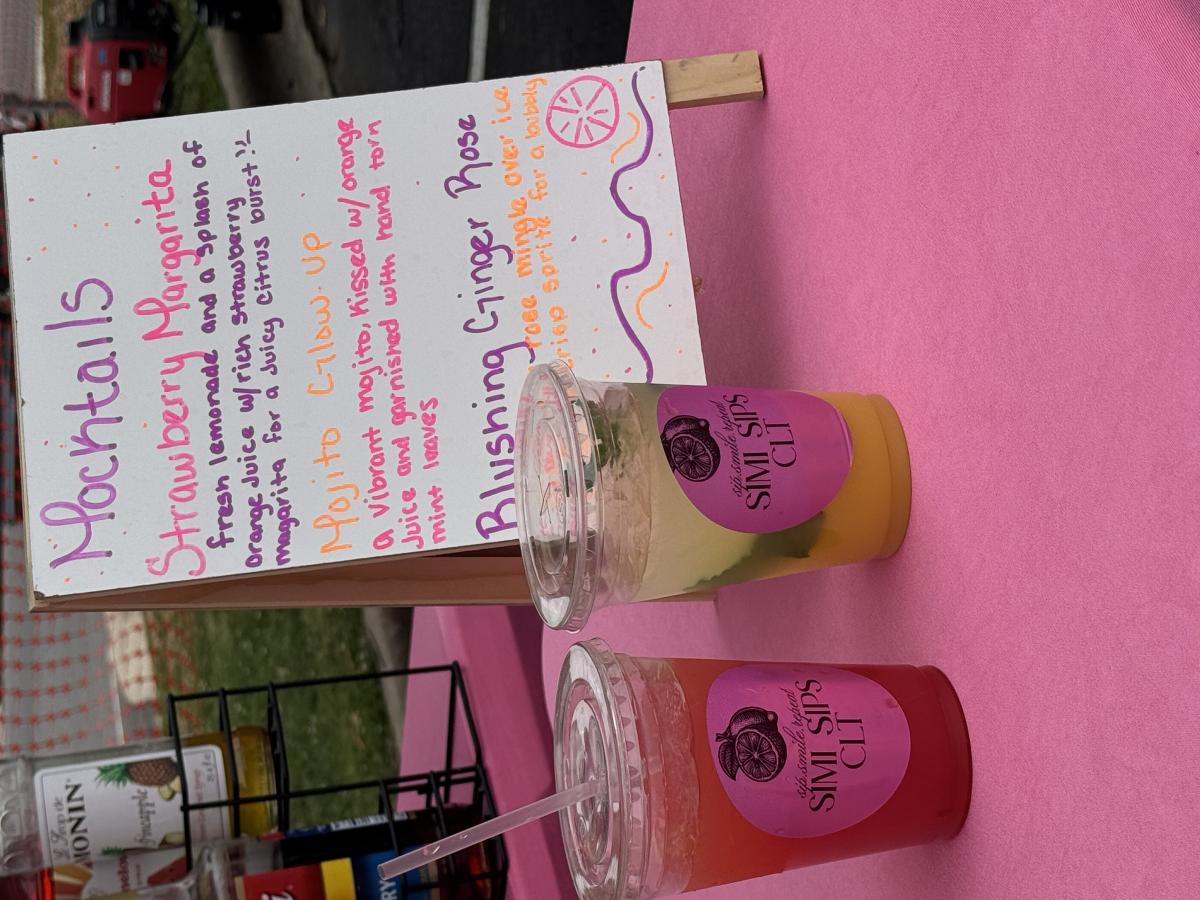 Mocktails
Strawberry Margarita
fresh lemonade and a splash of
orange juice w/rich strawberry
magarita for a juicy citrus burst!!
Mojito Glow-Up
a vibrant mojito, kissed w/ orange
juice and garnished with hand torn
mint leaves
Blushing Ginger Rose
rose mingle over ice
crisp sprite for a bubbly
sip.smile.repeat
SIMI SIPS
CLT
sip.smile.repeat
SIMI SIPS
CLT
Le Sirop de
MONIN
Pineapple